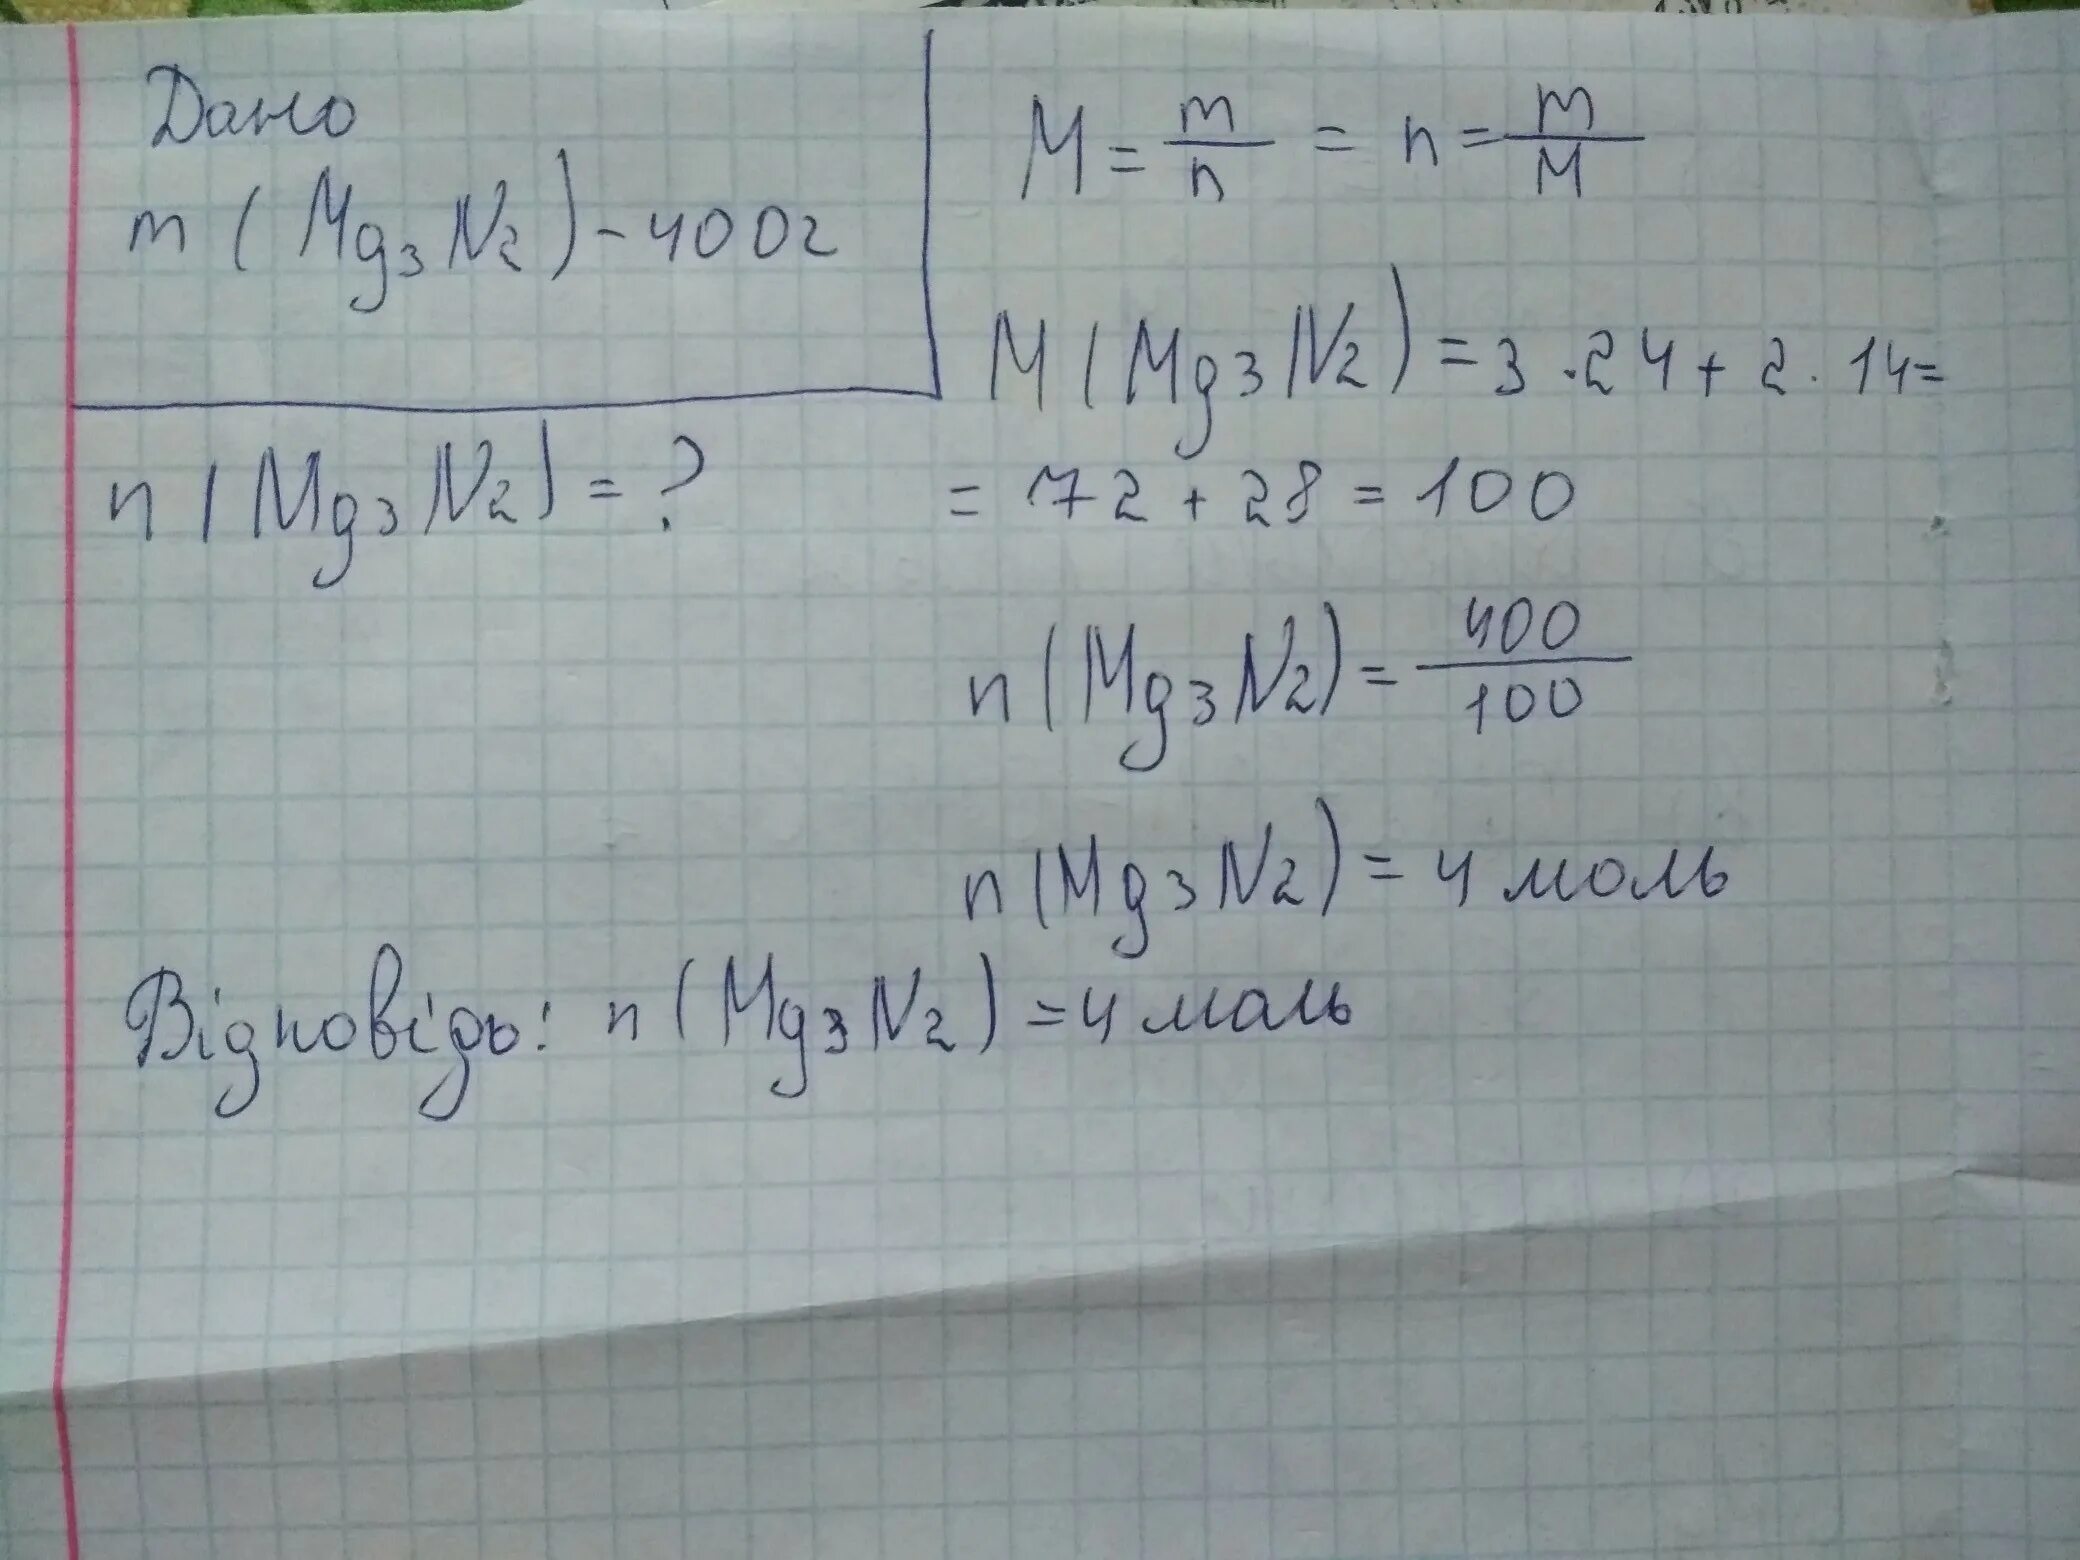 Дано
m (Mg3N2) - 400г
n (Mg3N2) = ?
M = m/n = n = m/M
M (Mg3N2) = 3 · 24 + 2 · 14 =
= 72 + 28 = 100
n (Mg3N2) = 400/100
n (Mg3N2) = 4 моль
Відповідь: n (Mg3N2) = 4 моль